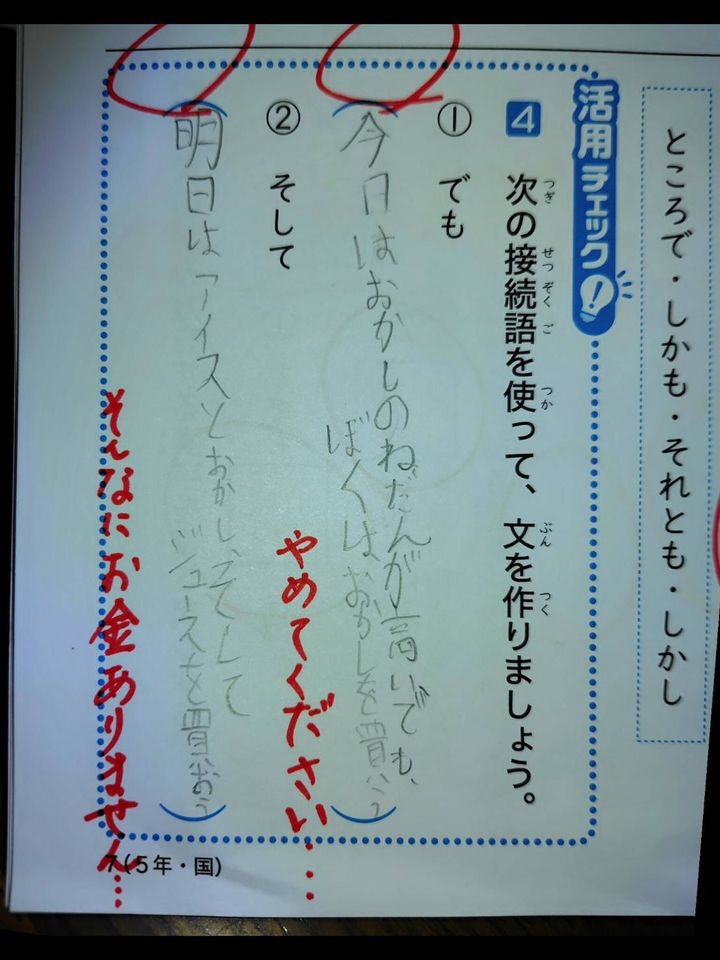 ところで・しかも・それとも・しかし
活用チェック!
4 次の接続語を使って、文を作りましょう。
つぎ せつぞくご つか ぶん つく
① でも
今日はおかしのねだんが高いでも、
ぼくはおかしを買う
やめてください....
② そして
明日はアイスとおかし、そして
ジュースを買おう
そんなにお金ありません...
7(5年・国)